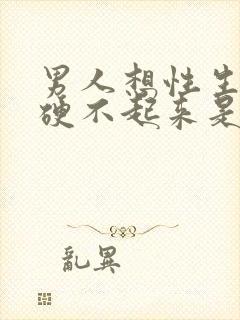 男人想性生
硬不起来是
亂異